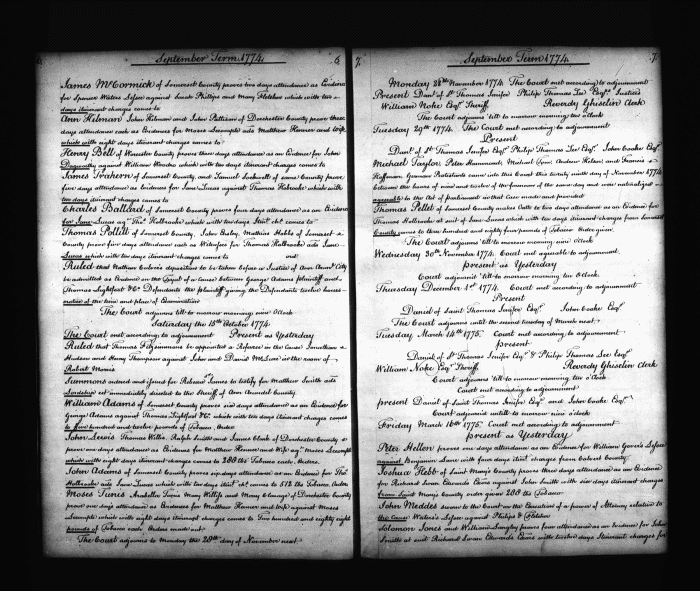 6
September Term 1774
6
James McCormick of Somerset County proves two days attendance as Evidence
for Spencer Waters Lessee against Sarah Phillips and Mary Fletcher which with two
days itinerant charges comes to
Ann Helman John Helman and John Pattison of Dorchester County prove three
days attendance each as Evidence for Moses ads Matthew Hanner and wife
which with eight days itinerant charges comes to
Henry Bell of Worcester County proves three days attendance as an Evidence for John
against William which with two days itinerant charges comes to
James Trahern of Somerset County, and Samuel of same County prove
five days attendance as Evidences for Jane Lucas against Thomas Holbrooke which with
two days itinerant charges comes to
Charles Ballard of Somerset County proves four days attendance as an Evidence
for Jane Lucas agt Thos Holbrooke which with two days Itint chs comes to
Thomas Pollitt of Somerset County, John Bayley, Mathias Hobbs of Somerset
County prove four days attendance each as Witnesses for Thomas Holbrooke ads Jane
Lucas which with two days itinerant charges comes to and
Ruled that Matthew depositions to be taken before a Justice of Ann Arundel City
be admitted as Evidence on the Tryal of a Cause between George Adams plaintiff and
Thomas Lightfoot &c Defendants the plaintiff giving the Defendants twelve hours
notice of the time and place of Examination
The Court adjourns till to-morrow morning nine oClock
Saturday the 15th October 1774
The Court met according to adjournment Present as Yesterday
Ruled that Thomas Fitzsimmons be appointed a Referee in the Cause Jonathan
Hudson and Henry Thompson against John and David McLure in the room of
Robert Morris
Summons ordered and issued for Rebecca James to testify for Matthew Smith ads
immediately directed to the Sheriff of Ann Arundel County
William Adams of Somerset County proves nine days attendance as an Evidence for
George Adams against Thomas Lightfoot &c which with two days itinerant charges comes
to five hundred and twelve pounds of Tobacco, Order
John Lewis Thomas Willis, Ralph Smith and James Clark of Dorchester County
prove one days attendance as Evidence for Matthew Hanner and Wife agt Moses
which with eight days itinerant charges comes to 288 lbs Tobacco each. Orders.
John Adams of Somerset County proves days attendance as an Evidence for Thos
Holbrooke ads Jane Lucas which with two days itint chs comes to 512 lbs Tobacco, Order
Moses Tunis Arabella Tunis Mary Willis and Mary of Dorchester County
prove one days attendance as Evidences for Matthew Hanner and Wife against Moses
which with eight days itinerant charges comes to Two hundred and eighty eight
pounds of Tobacco each Orders made out
The Court adjourns to Monday the 28th day of November next
7
September Term 1774
7
Monday 28th November 1774 The Court met according to adjournment
Present Danl of St Thomas Jenifer Philip Thomas Lee Esqrs
William Noke Esqr Sheriff Reverdy Ghiselin Clerk
The Court adjourns till to-morrow morning ten oClock
Tuesday 29th 1774. The Court met according to adjournment
Present
Danl of St Thomas Jenifer Esqr Philip Thomas Lee Esqr John Cooke Esqr
Michael Taylor, Peter Hammond, Michael Andrew Helsen and Francis
Hoffman German Protestants came into the Court this twenty ninth day of November 1774
between the hours of nine and twelve of the forenoon of the same day and were naturalized
agreeable to the Act of parliament in that Case made and provided
Thomas Pollet of Somerset County makes Oath to two days attendance as an Evidence for
Thomas Holbrooke at suit of Jane Lucas which with two days itinerant charges from Somerset
County comes to three hundred and eighty four pounds of Tobacco Order given
The Court adjourns till to-morrow morning nine oClock
Wednesday 30th November 1774. Court met agreeable to adjournment.
present as Yesterday
Court adjourns till to-morrow morning ten oClock.
Thursday December 1st 1774. Court met according to adjournment
Present
Daniel of Saint Thomas Jenifer Esqr John Cooke Esqr
The Court adjourns until the second tuesday of March next
Tuesday March 14th 1775. Court met according to adjournment
present
Daniel of St Thomas Jenifer Esqr & Philip Thomas Lee Esqr
William Noke Esqr Sheriff. Reverdy Ghiselin Clerk
Court adjourns till to-morrow morning ten oClock
Court met according to adjournment.
present Daniel of Saint Thomas Jenifer Esqr and John Cooke Esqr
Court adjourns untill to-morrow nine oClock
Friday March 16th 1775. Court met according to adjournment
present as Yesterday
Peter Hellen proves one days attendance as an Evidence for William Lessee
against Benjamin Lane with four days itint charges from Calvert County
Joshua Hebb of Saint Mary's County proves three days attendance as an Evidence
for Richard Swan Edwards Exors against John Smith with six days itinerant charges
from Saint Mary's County order given 288 lbs Tobacco
John Meddes sworn to the Court on the Execution of a power of Attorney relative to
the Cause Waters's Lessee against Philips & Fletcher
Solomon Jones and William Langley proves four attendance as an Evidence for John
Smith at suit Richard Swan Edwards Exors with twelve days Itinerant charges for